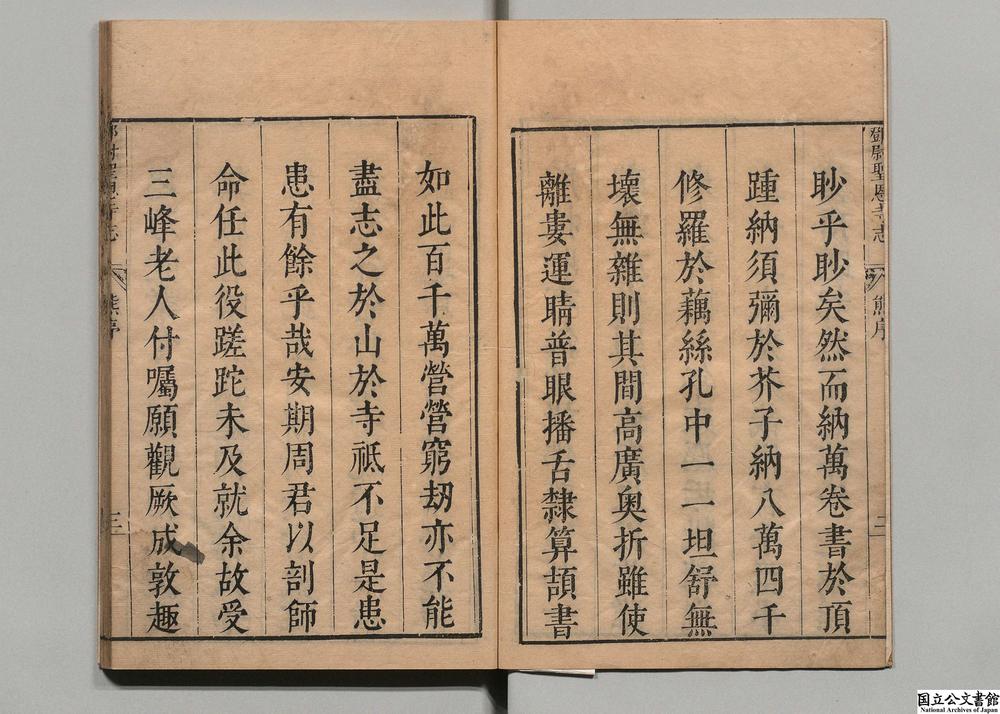 鄧尉聖恩寺志
熊序
三
眇乎眇矣然而納萬卷書於頂
踵納須彌於芥子納八萬四千
修羅於藕絲孔中一一坦舒無
壞無雜則其間高廣奥折雖使
離婁運睛普眼播舌隸算頡書
如此百千萬營營窮刼亦不能
盡志之於山於寺祗不足是患
患有餘乎哉安期周君以剖師
命任此役蹉跎未及就余故受
三峰老人付囑願觀厥成敦趣
熊序
三
国立公文書館
National Archives of Japan